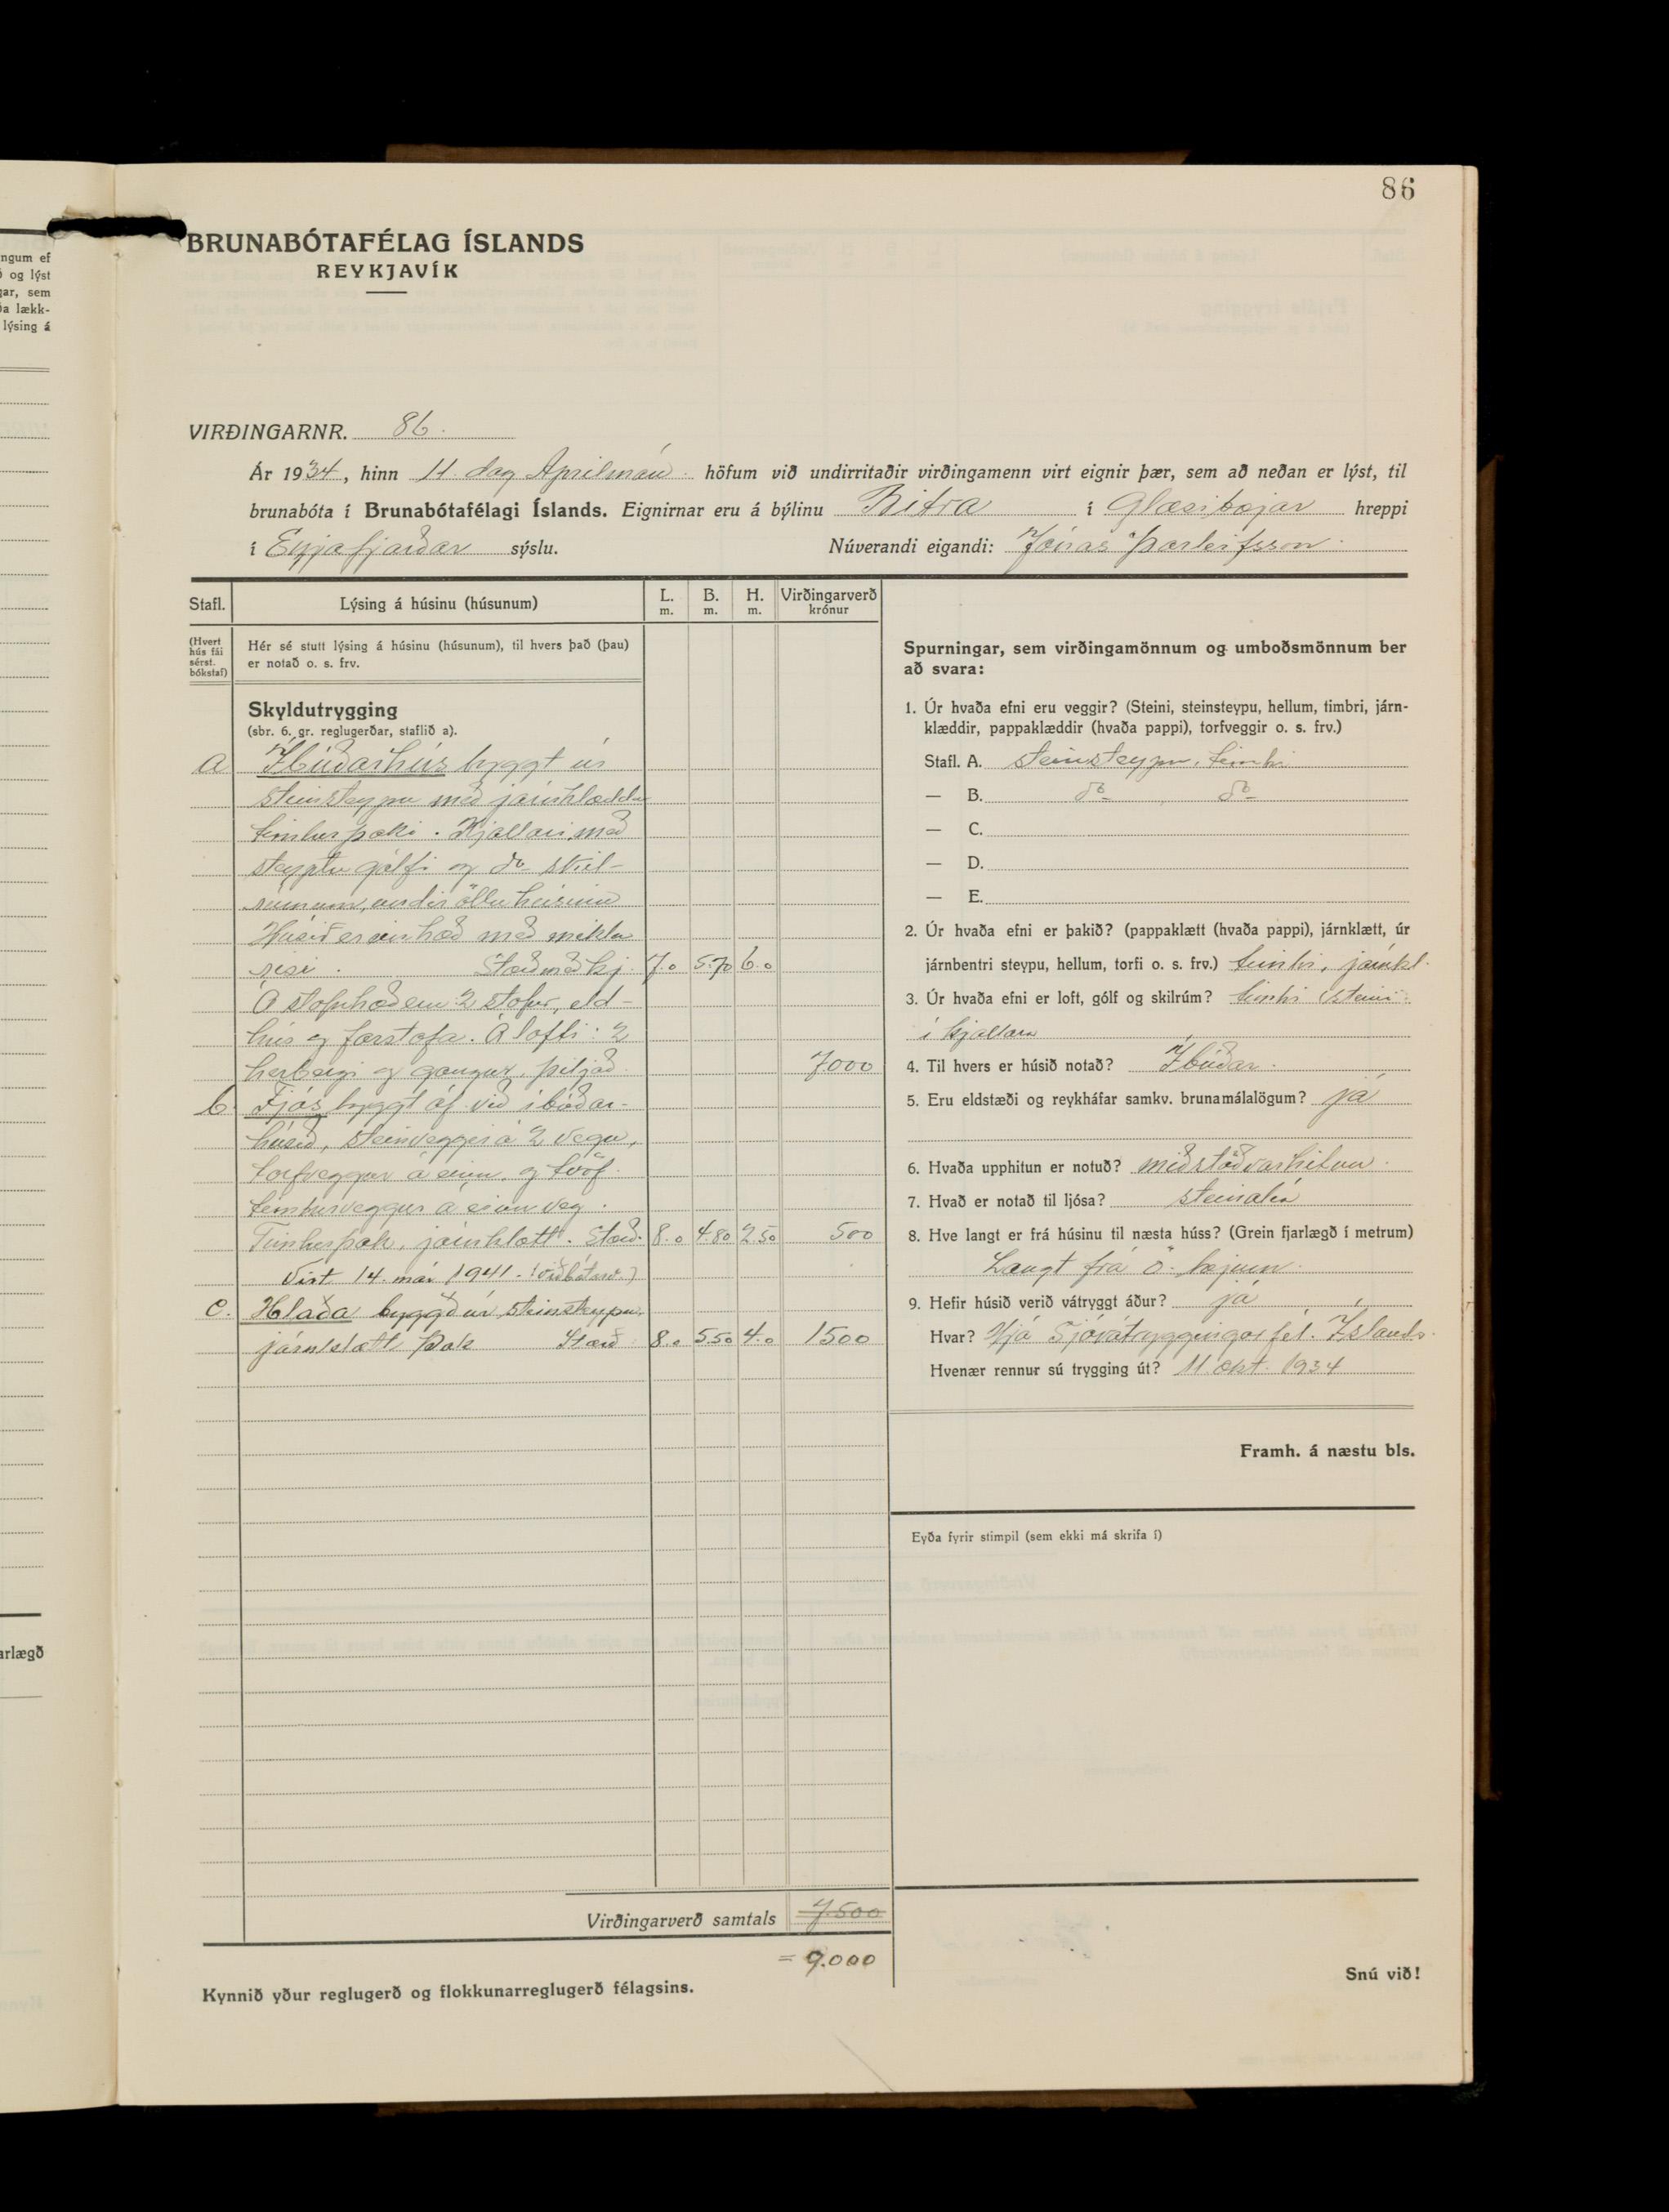 86
ngum ef
ð og lýst
gar, sem
ða lækk-
lýsing á
arlægð
BRUNABÓTAFÉLAG ÍSLANDS
REYKJAVÍK
VIRÐINGARNR. 86.
Ár 1934, hinn 11. dag Aprílmán. höfum við undirritaðir virðingamenn virt eignir þær, sem að neðan er lýst, til
brunabóta í Brunabótafélagi Íslands. Eignirnar eru á býlinu Bitra í Glæsibæjar hreppi
í Eyjafjarðar sýslu. Núverandi eigandi: Jónas Þorleifsson.
Stafl. Lýsing á húsinu (húsunum) L. m. B. m. H. m. Virðingarverð krónur
(Hvert hús fái sérst. bókstaf)
Hér sé stutt lýsing á húsinu (húsunum), til hvers það (þau)
er notað o. s. frv.
Skyldutrygging
(sbr. 6. gr. reglugerðar, staflið a).
a Íbúðarhús byggt úr
steinsteypu með járnklæddu
timburþaki. Kjallari með
steyptu gólfi og do- skil-
rúmum, undir öllu húsinu
Húsið er ein hæð með miklu
risi. Stærð með kj. 7.0 5.70 6.0
Á stofuhæð eru 2 stofur, eld-
hús og forstofa. Á lofti: 2
herbergi og gangur, þiljað. 7000
b. Fjós byggt áf. við íbúðar-
húsið, steinveggir á 2 vegu,
torfveggur á einn, og tvöf.
timburveggur á einn veg.
Timburþak, járnklætt. Stærð. 8.0 4.80 2.50 500
Virt 14. maí 1941 - (viðbótarv.)
c. Hlaða byggð úr steinsteypu,
járnklætt þak Stærð 8.0 5.50 4.0 1500
Virðingarverð samtals 7500
= 9.000
Kynnið yður reglugerð og flokkunarreglugerð félagsins.
Spurningar, sem virðingamönnum og umboðsmönnum ber
að svara:
1. Úr hvaða efni eru veggir? (Steini, steinsteypu, hellum, timbri, járn-
klæddir, pappaklæddir (hvaða pappi), torfveggir o. s. frv.)
Stafl. A. steinsteypu, timbri
— B. do- , do-
— C.
— D.
— E.
2. Úr hvaða efni er þakið? (pappaklætt (hvaða pappi), járnklætt, úr
járnbentri steypu, hellum, torfi o. s. frv.) timbri, járnkl.
3. Úr hvaða efni er loft, gólf og skilrúm? timbri (steini
í kjallara
4. Til hvers er húsið notað? Íbúðar.
5. Eru eldstæði og reykháfar samkv. brunamálalögum? já
6. Hvaða upphitun er notuð? miðstöðvarhitun.
7. Hvað er notað til ljósa? steinolía
8. Hve langt er frá húsinu til næsta húss? (Grein fjarlægð í metrum)
Langt frá ö. bæjum.
9. Hefir húsið verið vátryggt áður? já
Hvar? Hjá Sjóvátryggingarfél. Íslands.
Hvenær rennur sú trygging út? 11. okt. 1934
Framh. á næstu bls.
Eyða fyrir stimpil (sem ekki má skrifa í)
Snú við!